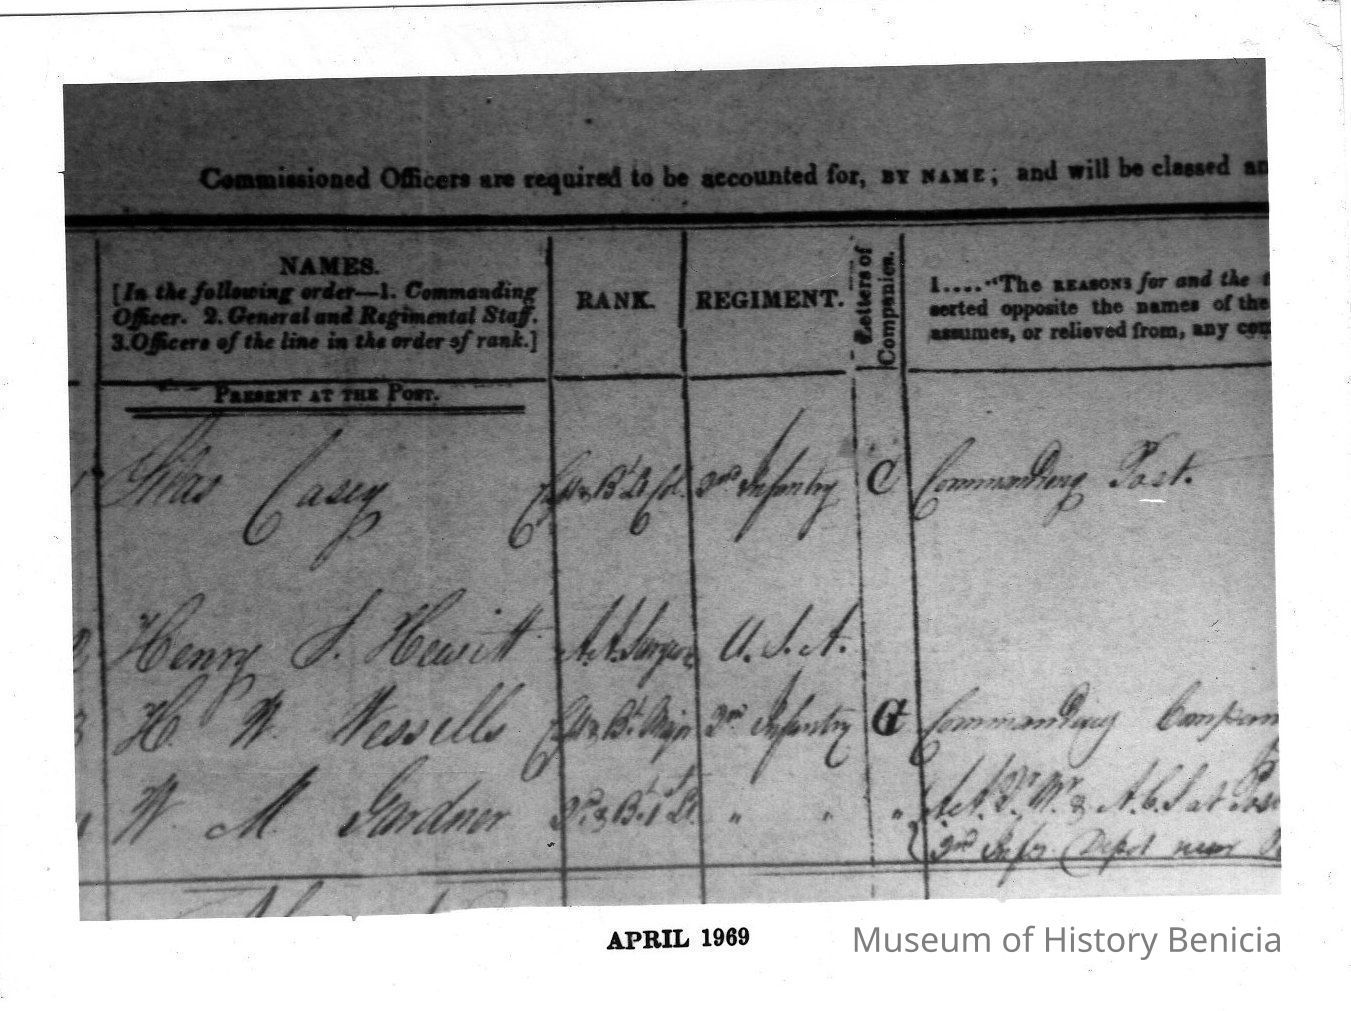 Commissioned Officers are required to be accounted for, BY NAME; and will be classed an
NAMES.
[In the following order—1. Commanding
Officer. 2. General and Regimental Staff.
3. Officers of the line in the order of rank.]
RANK.
REGIMENT.
Letters of
Companies.
1...."The REASONS for and the
serted opposite the names of the
assumes, or relieved from, any com
PRESENT AT THE POST.
1 Silas Casey Capt & Bt Lt Col. 2nd Infantry C Commanding Post.
2 Henry S. Hewitt A.A. Surgeon U.S.A.
3 H. W. Wessells Capt & Bt Major 2nd Infantry G Commanding Company
W. M. Gardner 2d & Bt 1st Lt " " " A.A.Q.M. & A.C.S at Post
2nd Infy Depot near
APRIL 1969
Museum of History Benicia